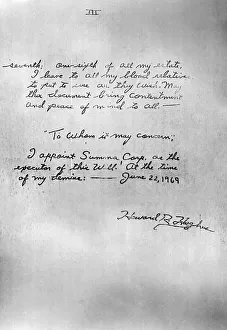 III
seventh; one sixth of all my estate,
I leave to all my blood relative
to put to use as they wish. May
this document bring contentment
and peace of mind to all —
"To Whom it may concern;
I appoint Summa Corp. as the
executor of this Will. At the time
of my demise: —— June 22, 1969
Howard R. Hughes